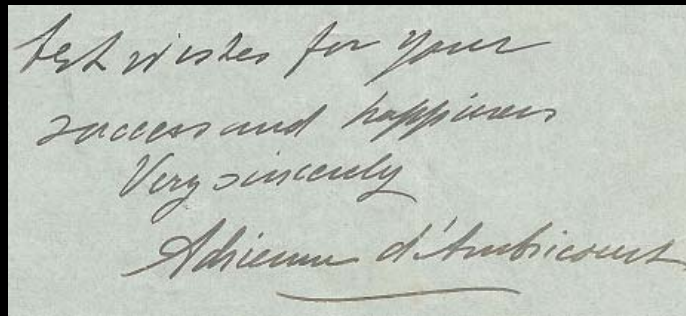 best wishes for your
success and happiness
Very sincerely
Adrienne d'Ambricourt